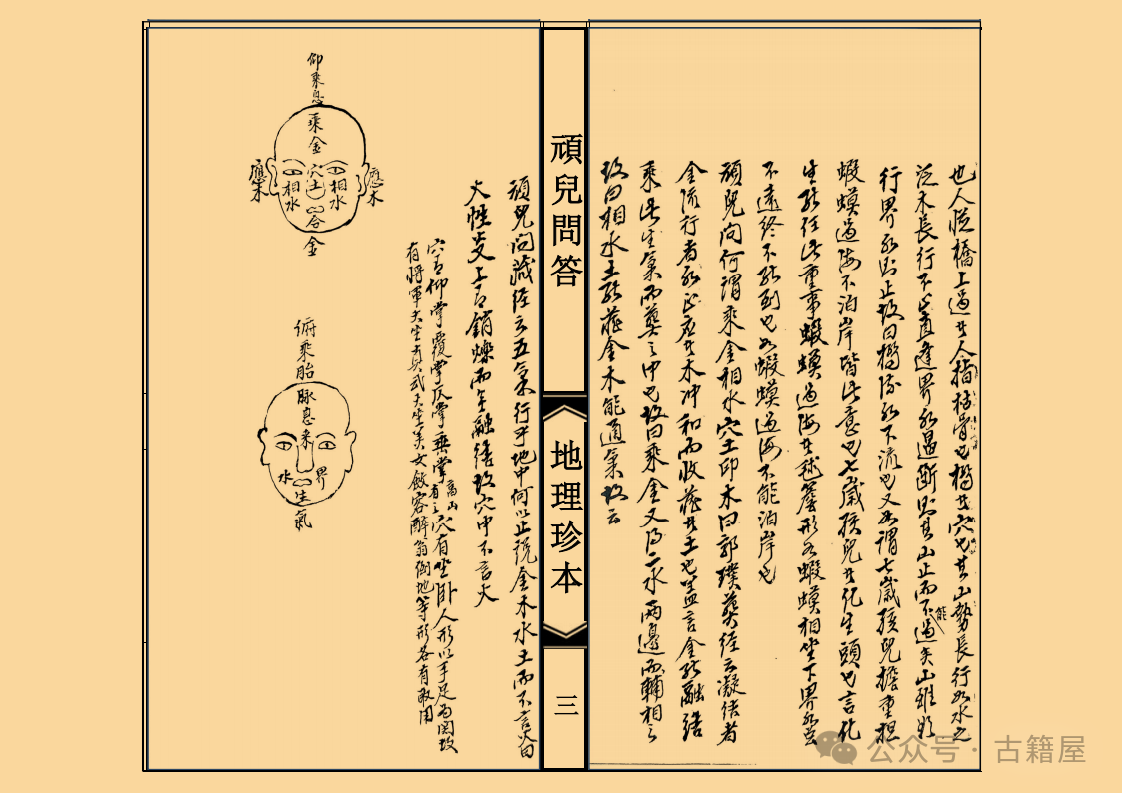 也人從橋上過其人指橋骨也橋其穴也其山勢長行如水之
泛木長行不管逢界水逼斷則其山止而不能過矣山雖好
行界水則止故曰橋流水不流也又如謂七歲孩兒擔重担
蝦蟆過海不泊岸皆此意也七歲孩兒其化生頭也言化
生能任此重事蝦蟆過海其毬簷形如蝦蟆相坐下界水
不遠終不能到也如蝦蟆過海不能泊岸也
頑兒問何謂乘金相水穴土印木曰郭璞葬經云凝結者
金流行者水正應其木冲和而收藏其土也蓋言金能融結
乘此生氣而葬之中也故曰乘金又得二水兩邊而輔相之
故曰相水土能藏金木能通氣故云
頑兒問答
地理珍本
三
頑兒問藏經云五氣行乎地中何以止說金木水土而不言火曰
火性炎上言銷爍而無融結故穴中不言火
穴有仰掌覆掌仄掌垂掌高山有之穴有坐卧人形以手足為関故
有將軍大坐貢武大坐美女散容醉翁倒地等形各有取用
仰乘息
乘金
穴土
相水
相水
應木
應木
合金
俯乘胎
脉息来
界水
生氣
公众号·古籍屋